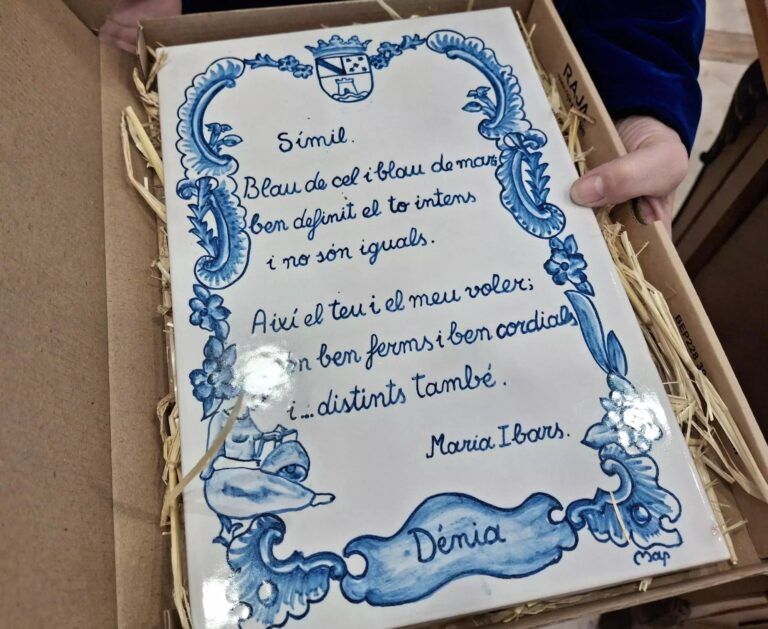 Símil.
Blau de cel i blau de mar;
ben definit el to intens
i no són iguals.
Així el teu i el meu voler;
ben ferms i ben cordials
i... distints també.
Maria Ibars.
Dénia
Map
RAJA